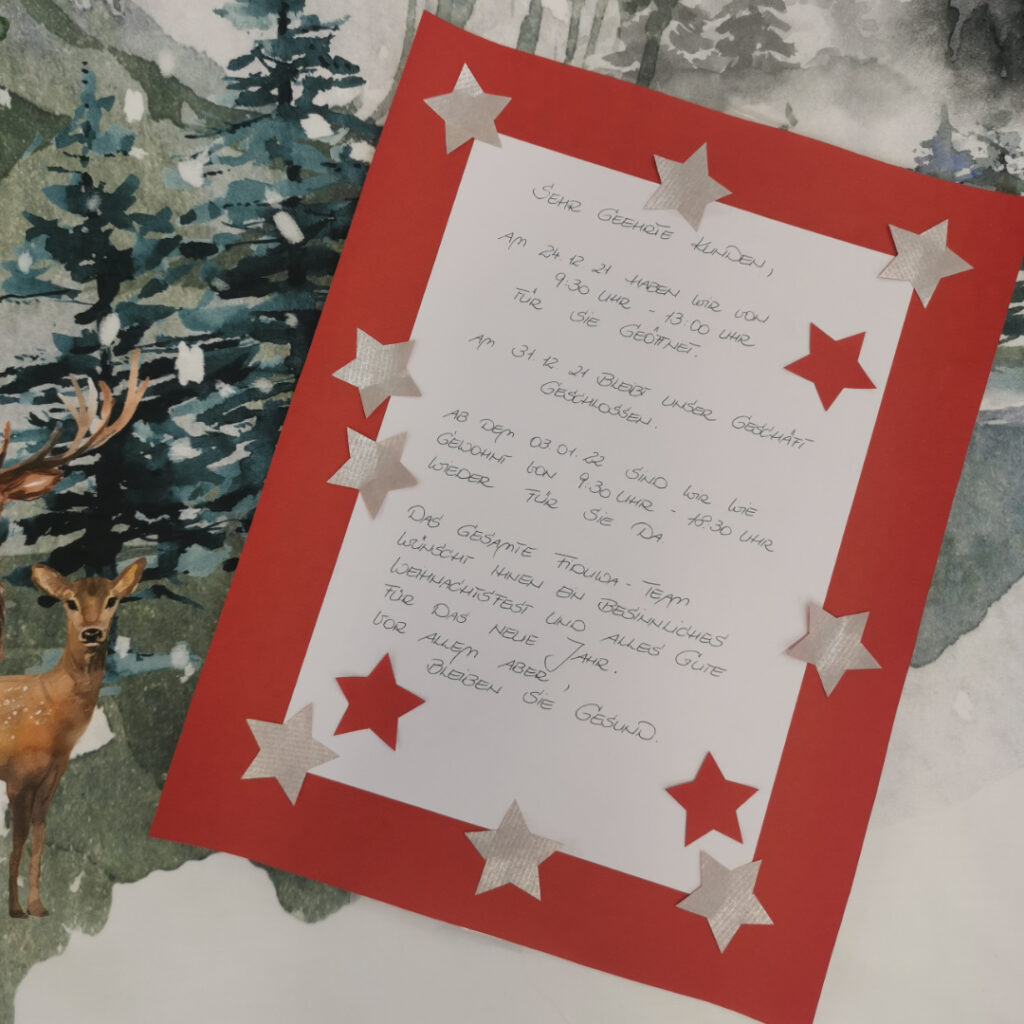 SEHR GEEHRTE KUNDEN,
AM 24.12.21 HABEN WIR VON
9:30 UHR - 13:00 UHR
FÜR SIE GEÖFFNET.
AM 31.12.21 BLEIBT UNSER GESCHÄFT
GESCHLOSSEN.
AB DEM 03.01.22 SIND WIR WIE
GEWOHNT VON 9:30 UHR - 18:30 UHR
WIEDER FÜR SIE DA
DAS GESAMTE FIDUWA-TEAM
WÜNSCHT IHNEN EIN BESINNLICHES
WEIHNACHTSFEST UND ALLES GUTE
FÜR DAS NEUE JAHR.
VOR ALLEM ABER,
BLEIBEN SIE GESUND.